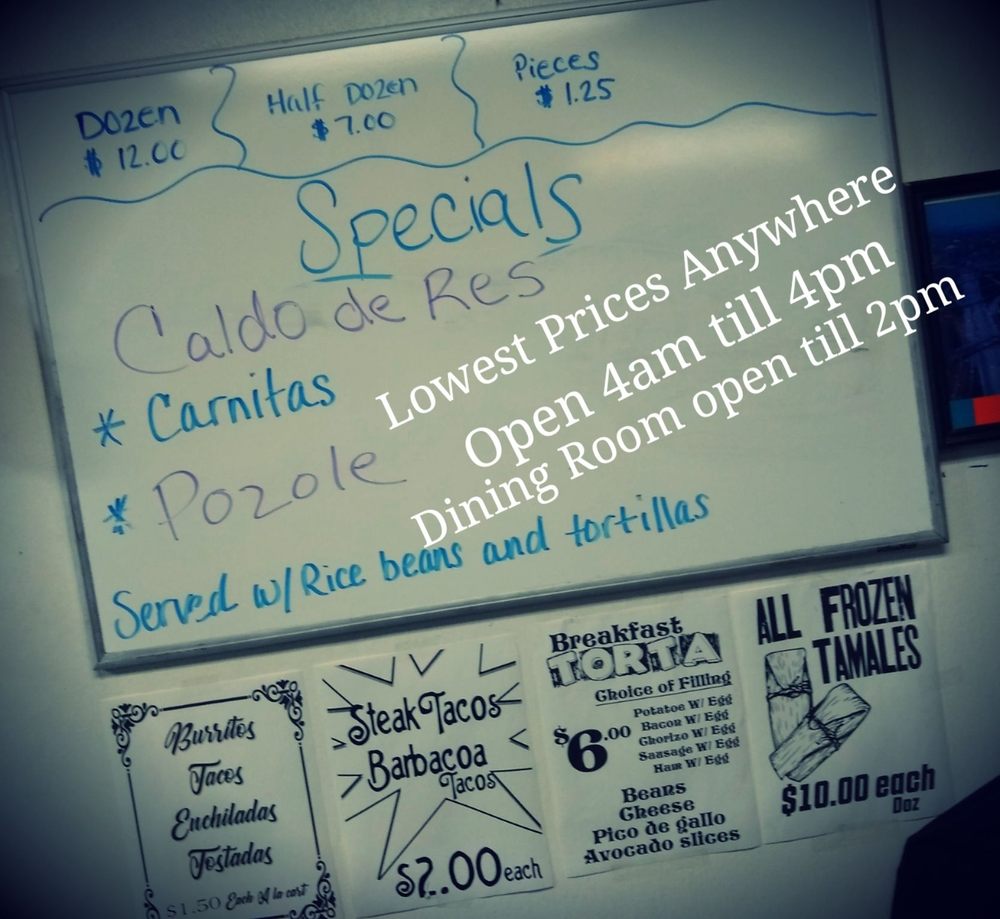 Dozen
$ 12.00
Half Dozen
$ 7.00
Pieces
$ 1.25
Specials
Caldo de Res
* Carnitas
* Pozole
Served w/Rice beans and tortillas
Lowest Prices Anywhere
Open 4am till 4pm
Dining Room open till 2pm
Burritos
Tacos
Enchiladas
Tostadas
$1.50 Each A la cart
Steak Tacos
Barbacoa
Tacos
$2.00 each
Breakfast
TORTA
Choice of Filling
$6.00
Potatoe W/ Egg
Bacon W/ Egg
Chorizo W/ Egg
Sausage W/ Egg
Ham W/ Egg
Beans
Cheese
Pico de gallo
Avocado slices
ALL FROZEN
TAMALES
$10.00 each
Doz